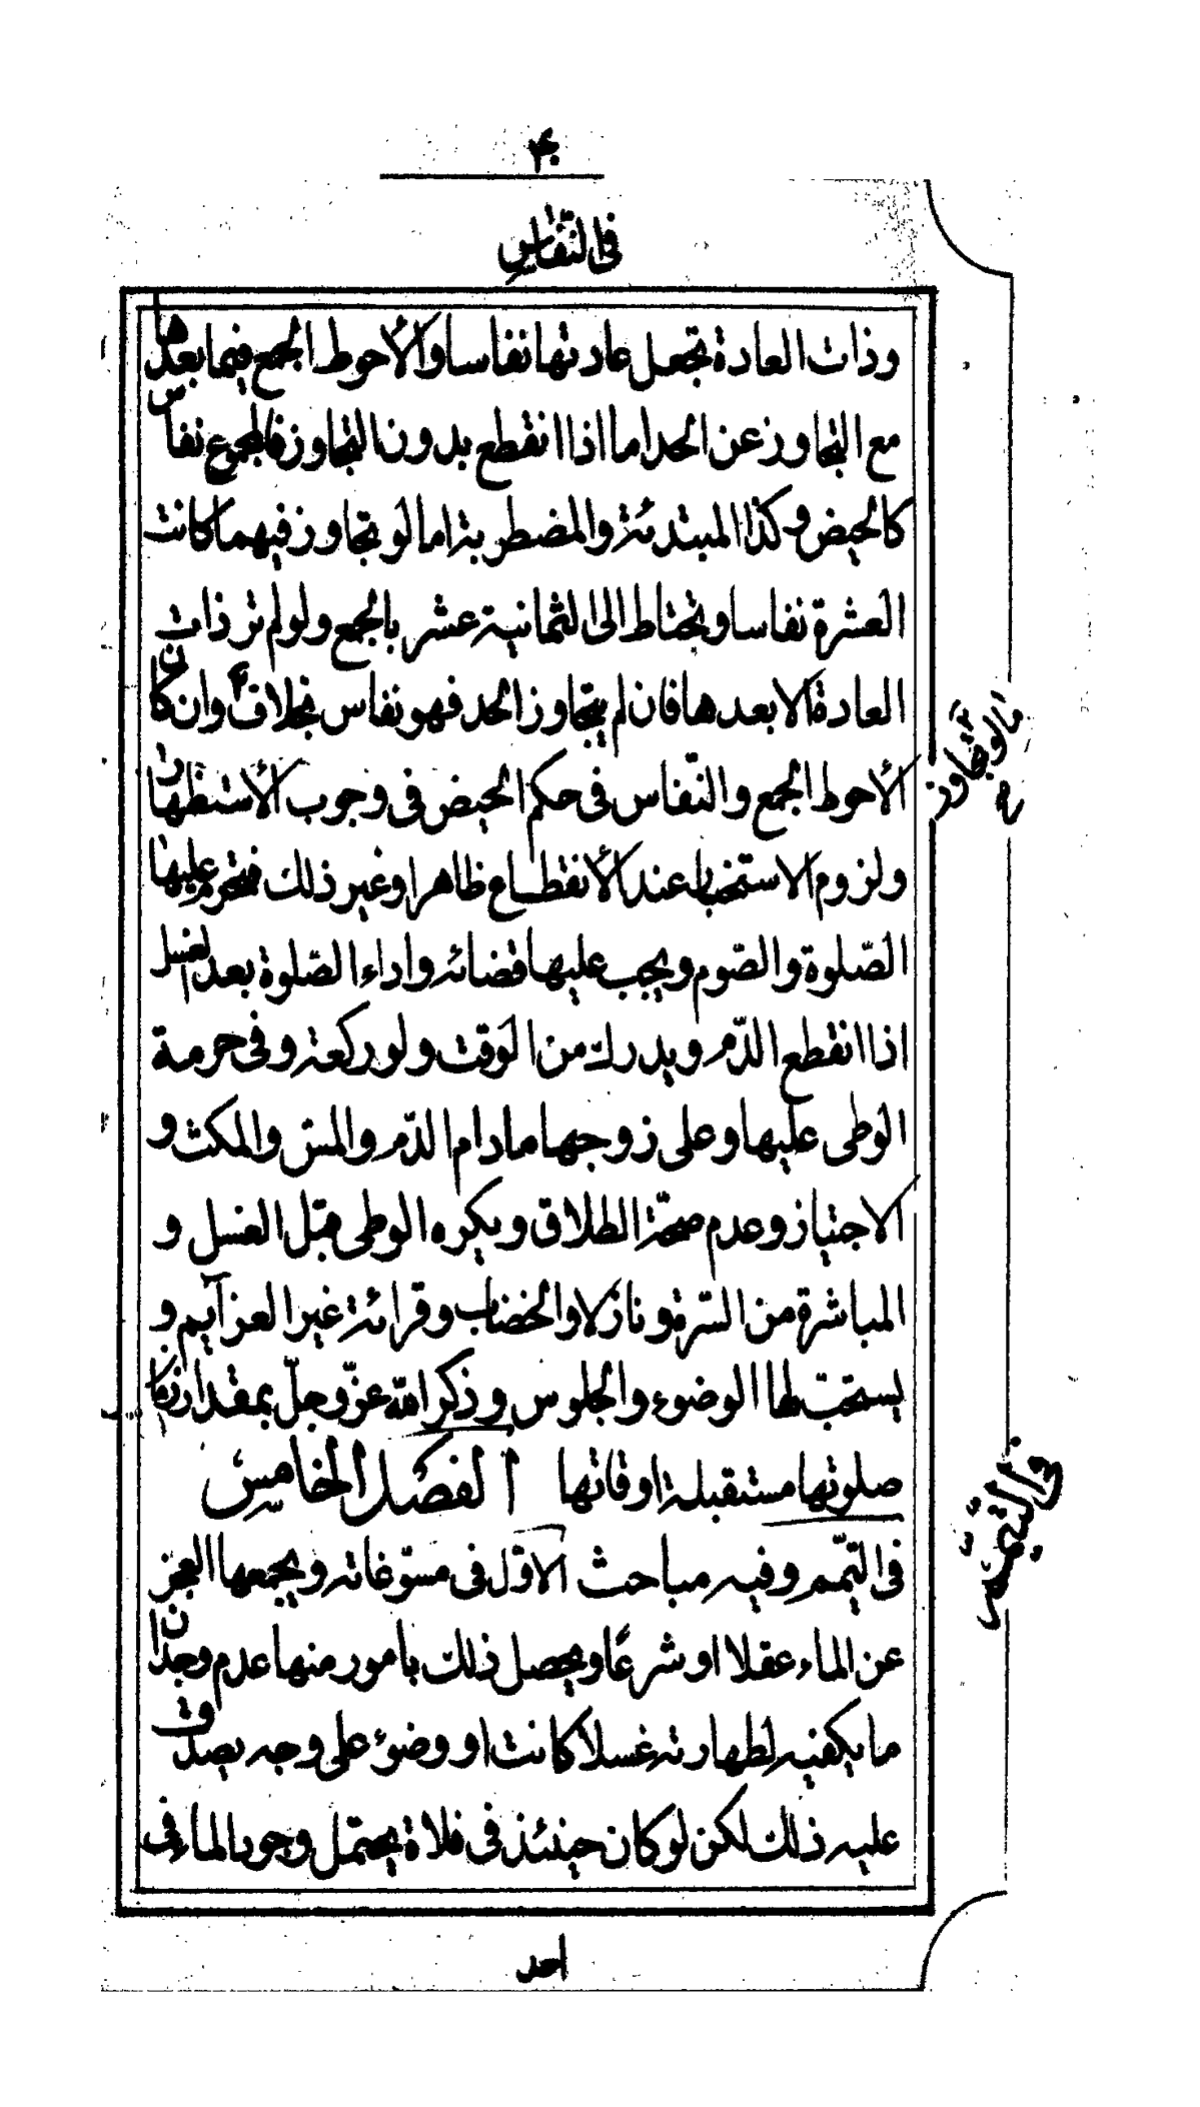 ۴۰
في النّفاس
وذات العادة تجعل عادتها نفاسا والأحوط الجمع فيما بعدها
مع التجاوز عن الحد اما اذا انقطع بدون التجاوز فالمجموع نفاس
كالحيض وكذا المبتدئة والمضطربة اما لو تجاوز فيهما كانت
العشرة نفاسا وتحتاط الى الثمانية عشر بالجمع ولو لم تر ذات
العادة الا بعدها فان لم يتجاوز الحد فهو نفاس بخلاف وان كان
ما لو تجاوز
صح
الأحوط الجمع والنّفاس في حكم الحيض في وجوب الأستظهار
ولزوم الاستخبار عند الأنقطاع ظاهرا وغير ذلك فتحرم عليها
الصّلوة والصّوم ويجب عليها قضائه واداء الصّلوة بعد الغسل
اذا انقطع الدّم ويدرك من الوقت ولو ركعة وفي حرمة
الوطى عليها وعلى زوجها مادام الدّم والمسّ والمكث و
الاجتياز وعدم صحّة الطلاق ويكره الوطى قبل الغسل و
المباشرة من السّرة ونازلا والخضاب وقرائة غير العزآيم و
يستحبّ لها الوضوء والجلوس وذكر الله عزّ وجلّ بمقدار زمان
صلوتها مستقبلة اوقاتها الفصل الخامس
في التيمّم
في التيمّم وفيه مباحث الاوّل في مسوّغاته ويجمعها العجز
عن الماء عقلا او شرعًا ويحصل ذلك بامور منها عدم وجدان
ما يكفيه لطهارته غسلا كانت او وضوء على وجه يصدق
عليه ذلك لكن لو كان حينئذ في فلاة يحتمل وجود الماء في
احد